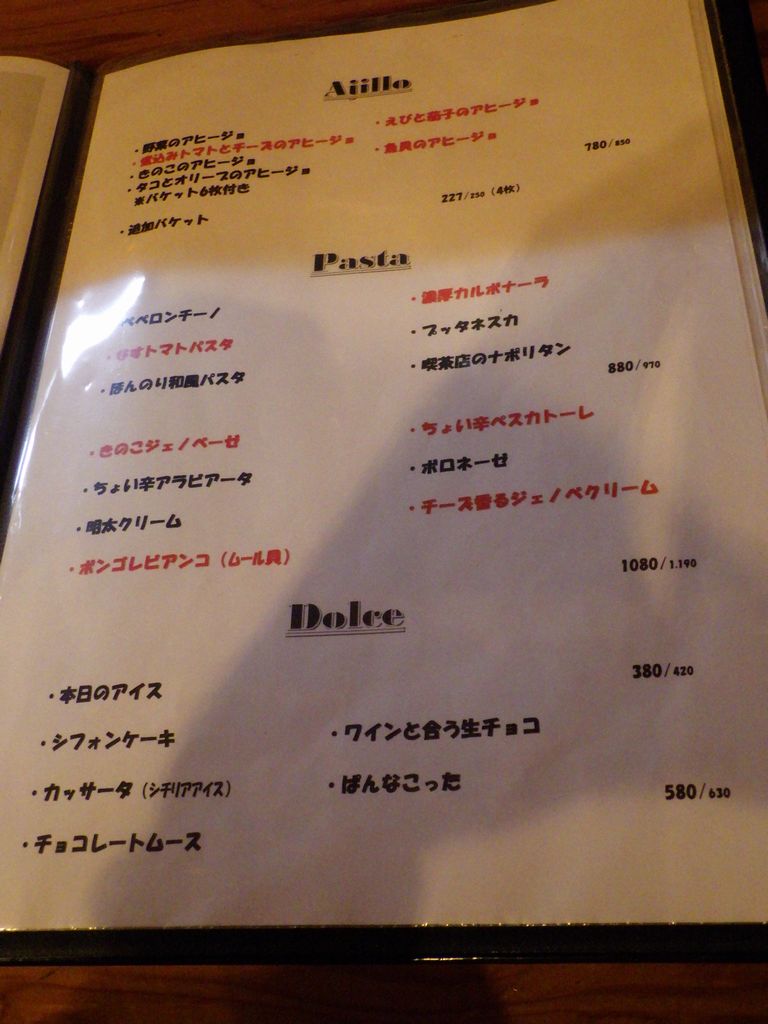 Ajillo
・野菜のアヒージョ
・煮込みトマトとチーズのアヒージョ
・きのこのアヒージョ
・タコとオリーブのアヒージョ
※バケット6枚付き
・えびと茄子のアヒージョ
・魚貝のアヒージョ
780/850
・追加バケット
227/250（4枚）
Pasta
ペペロンチーノ
・なすトマトパスタ
・ほんのり和風パスタ
・濃厚カルボナーラ
・プッタネスカ
・喫茶店のナポリタン
880/970
・きのこジェノベーゼ
・ちょい辛アラビアータ
・明太クリーム
・ボンゴレビアンコ（ムール貝）
・ちょい辛ペスカトーレ
・ボロネーゼ
・チーズ香るジェノベクリーム
1080/1.190
Dolce
380/420
・本日のアイス
・シフォンケーキ
・カッサータ（シチリアアイス）
・チョコレートムース
・ワインと合う生チョコ
・ぱんなこった
580/630